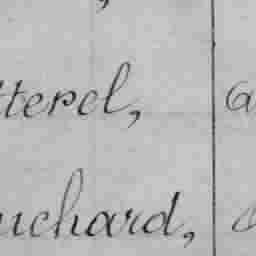 tterel, a
uchard,